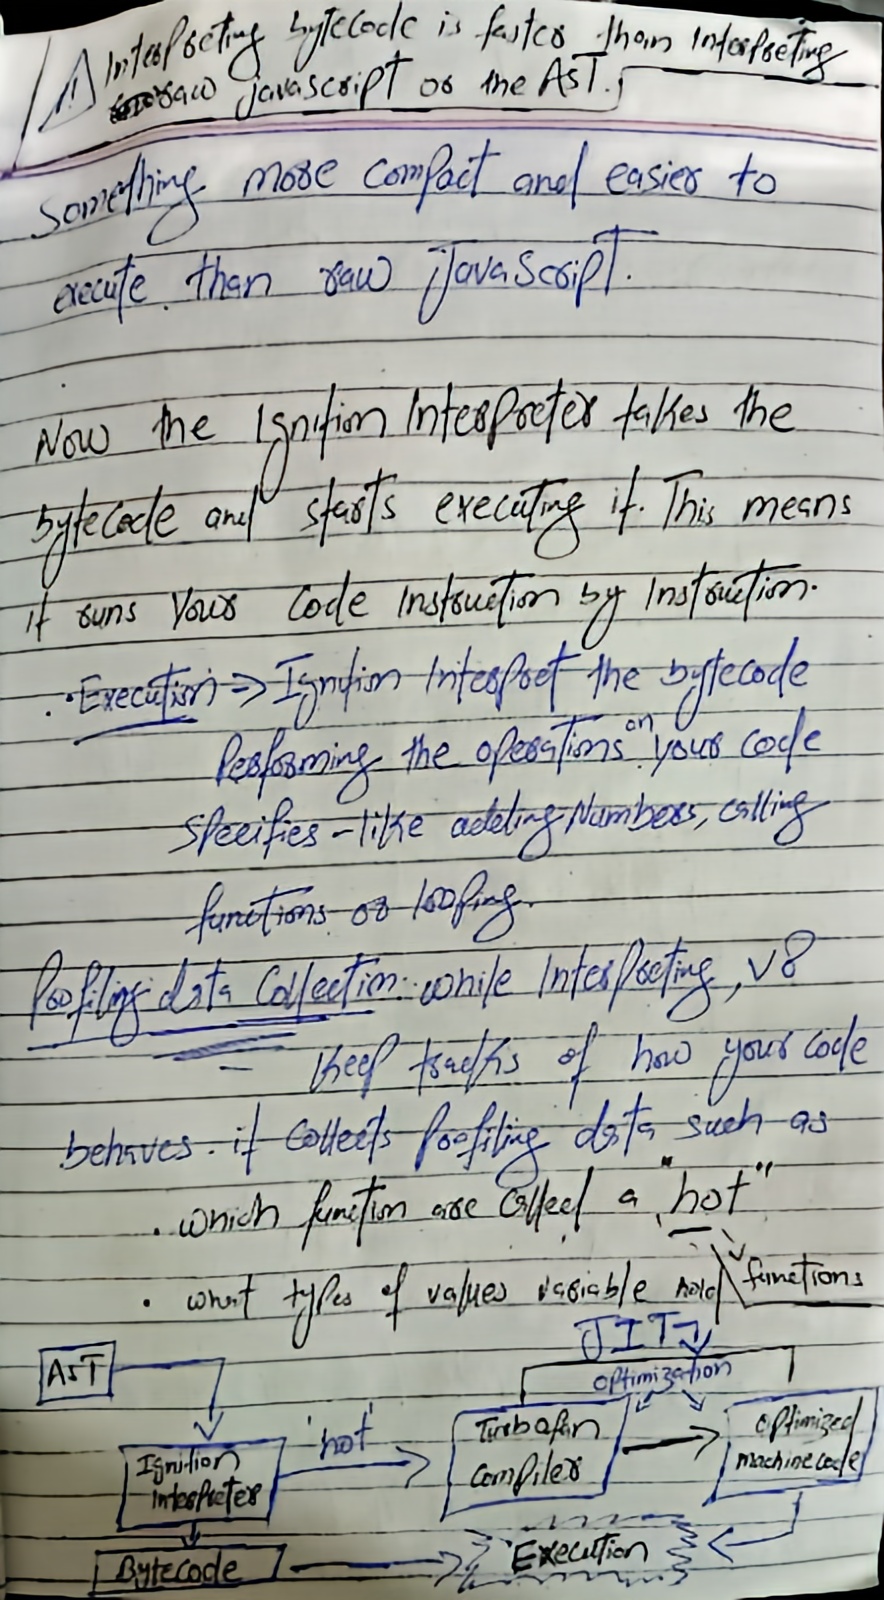 Interpreting bytecode is faster than Interpreting
raw javascript or the AST.
Something more compact and easier to
execute than raw javaScript.
Now the Ignition Interpreter takes the
bytecode and starts executing it. This means
it runs Your code Instruction by Instruction.
• Execution => Ignition Interpret the bytecode
Performing the operations on your code
Specifies - like adding Numbers, calling
functions or looping.
Profiling data Collection: while Interpreting, V8
Keep tracks of how your code
behaves. it collects Profiling data such as
• which function are called a "hot"
functions
• what types of values variable hold
JIT
AST
optimization
Ignition
Interpreter
'hot'
Turbofan
Compiler
optimized
machine code
Bytecode
Execution